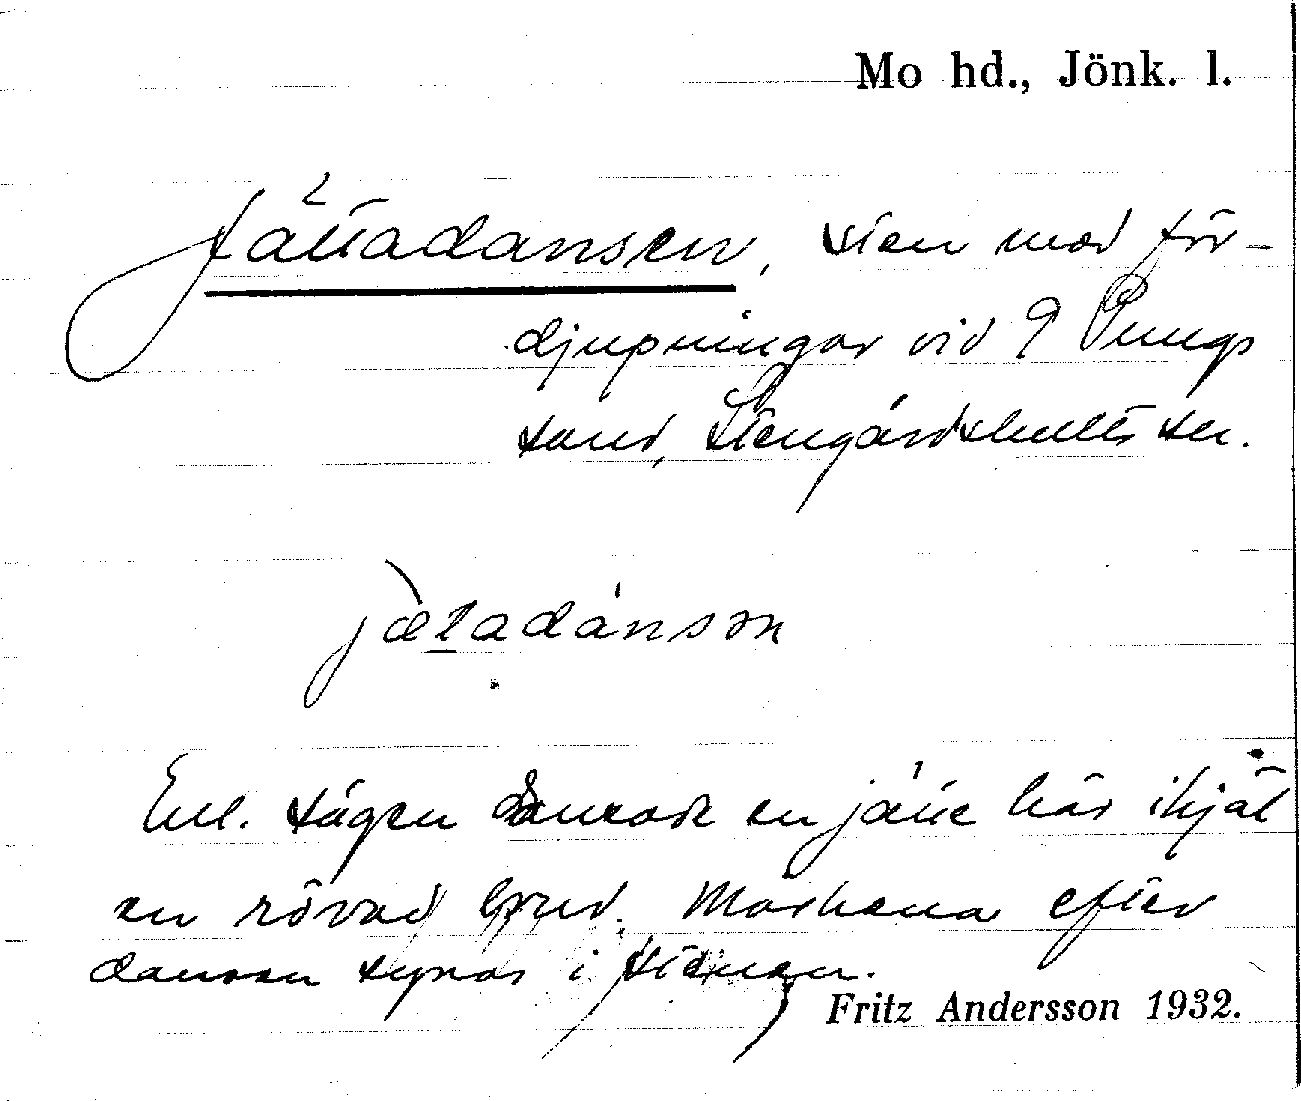 Mo hd., Jönk. l.
Jättadansen, sten med för-
djupningar vid 9 Pungs
sand, Stengårdshults sn.
jætadánsən
Enl. sägen dansade en jätte här ihjäl
en rövad brud. Märkena efter
dansen synas i stenen.
Fritz Andersson 1932.